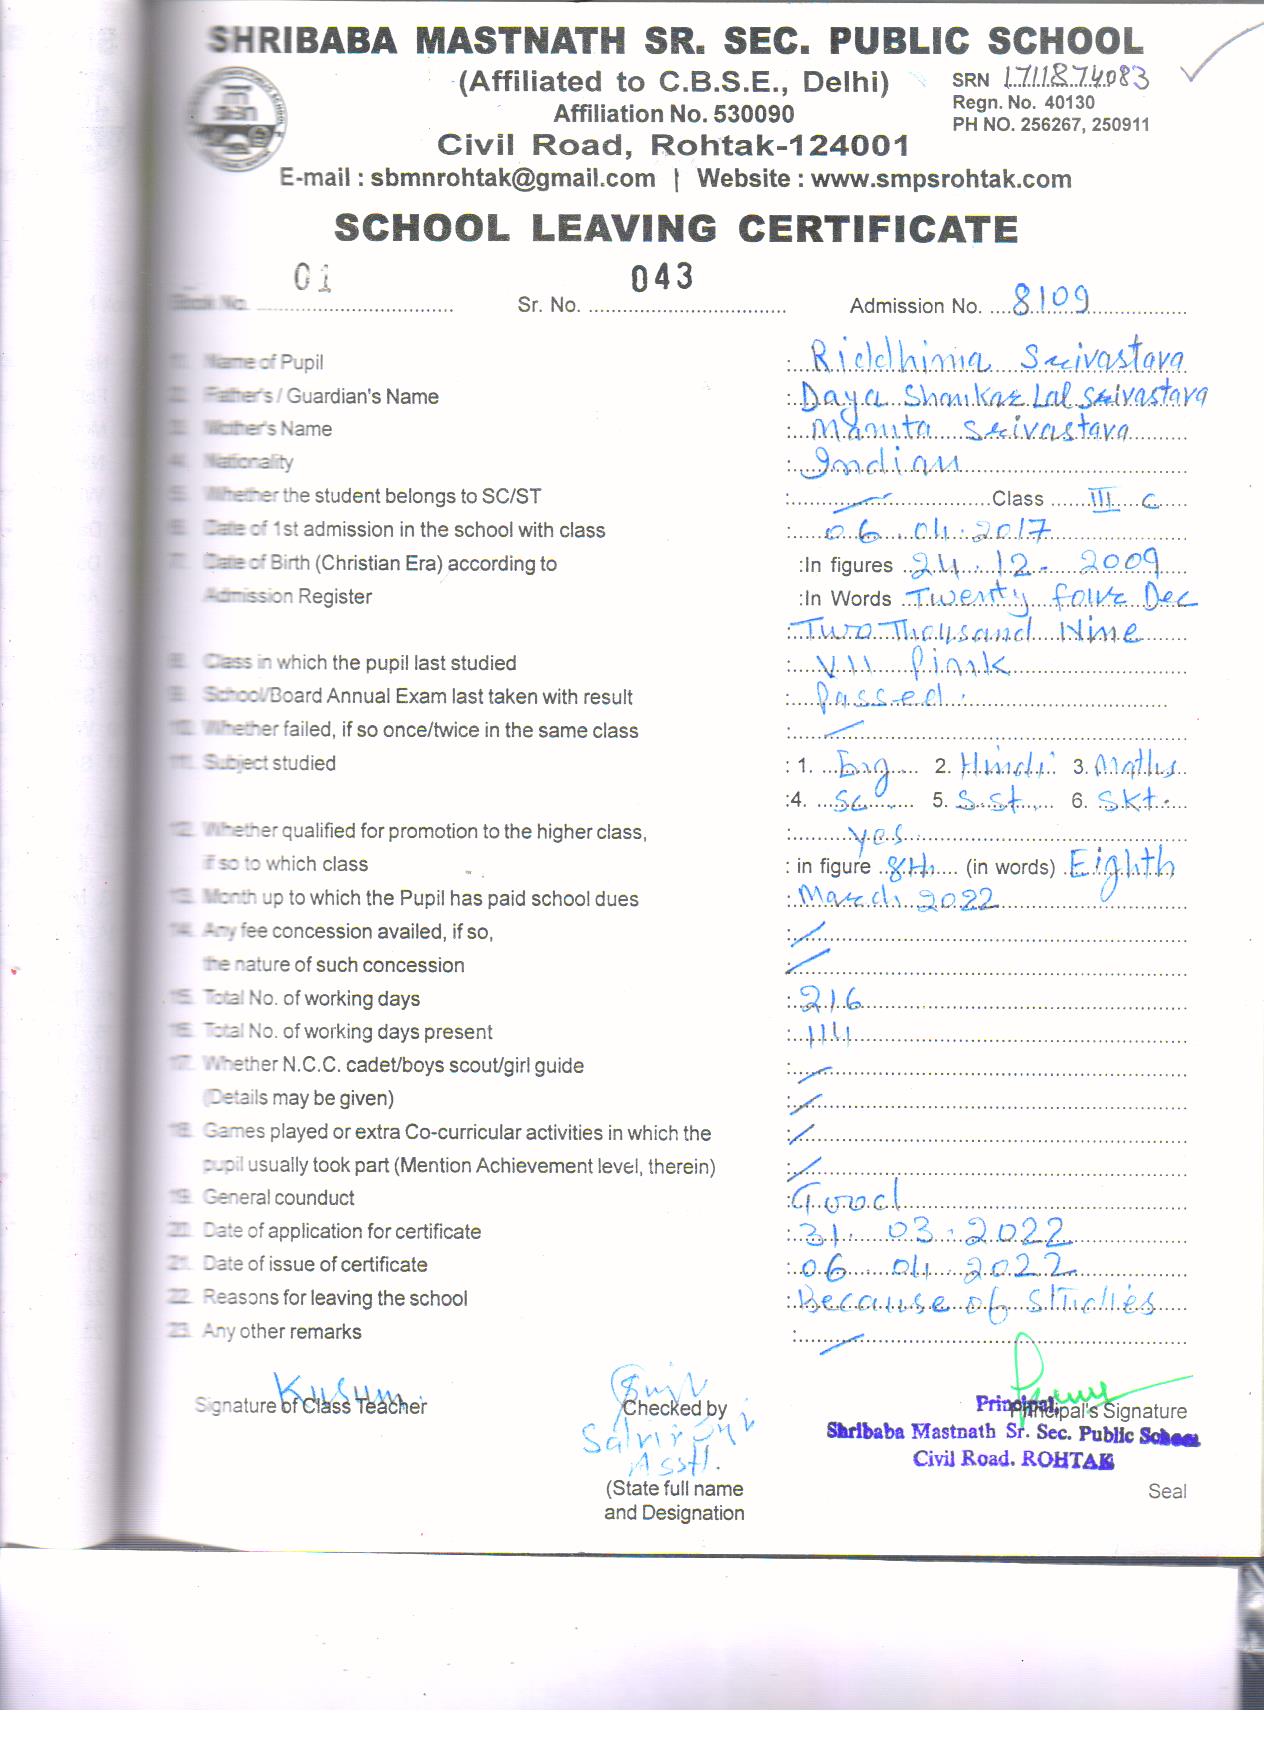 SHRIBABA MASTNATH SR. SEC. PUBLIC SCHOOL
(Affiliated to C.B.S.E., Delhi)
SRN 1711874083
Affiliation No. 530090
Regn. No. 40130
PH NO. 256267, 250911
Civil Road, Rohtak-124001
E-mail : sbmnrohtak@gmail.com | Website : www.smpsrohtak.com
SCHOOL LEAVING CERTIFICATE
Book No. 01 Sr. No. 043 Admission No. 8109
1. Name of Pupil : Riddhima Srivastava
2. Father's / Guardian's Name : Daya Shankar Lal Srivastava
3. Mother's Name : Mamta Srivastava
4. Nationality : Indian
5. Whether the student belongs to SC/ST : — Class III C
6. Date of 1st admission in the school with class : 06.04.2017
7. Date of Birth (Christian Era) according to :In figures 24.12.2009
Admission Register :In Words Twenty four Dec
: Two Thousand Nine
8. Class in which the pupil last studied : VII Pink
9. School/Board Annual Exam last taken with result : Passed.
10. Whether failed, if so once/twice in the same class : —
11. Subject studied : 1. Eng 2. Hindi 3. Maths
:4. Sc 5. S.st. 6. Skt.
12. Whether qualified for promotion to the higher class, : yes
if so to which class : in figure 8th (in words) Eighth
13. Month up to which the Pupil has paid school dues : March 2022
14. Any fee concession availed, if so, : —
the nature of such concession : —
15. Total No. of working days : 216
16. Total No. of working days present : 114
17. Whether N.C.C. cadet/boys scout/girl guide : —
(Details may be given) : —
18. Games played or extra Co-curricular activities in which the : —
pupil usually took part (Mention Achievement level, therein) : —
19. General counduct : Good
20. Date of application for certificate : 31.03.2022
21. Date of issue of certificate : 06.04.2022
22. Reasons for leaving the school : Because of STudies
23. Any other remarks : —
Kusum
Signature of Class Teacher Checked by Principal's Signature
Principal,
Shribaba Mastnath Sr. Sec. Public School
Civil Road. ROHTAK
Asstt.
(State full name
and Designation
Seal